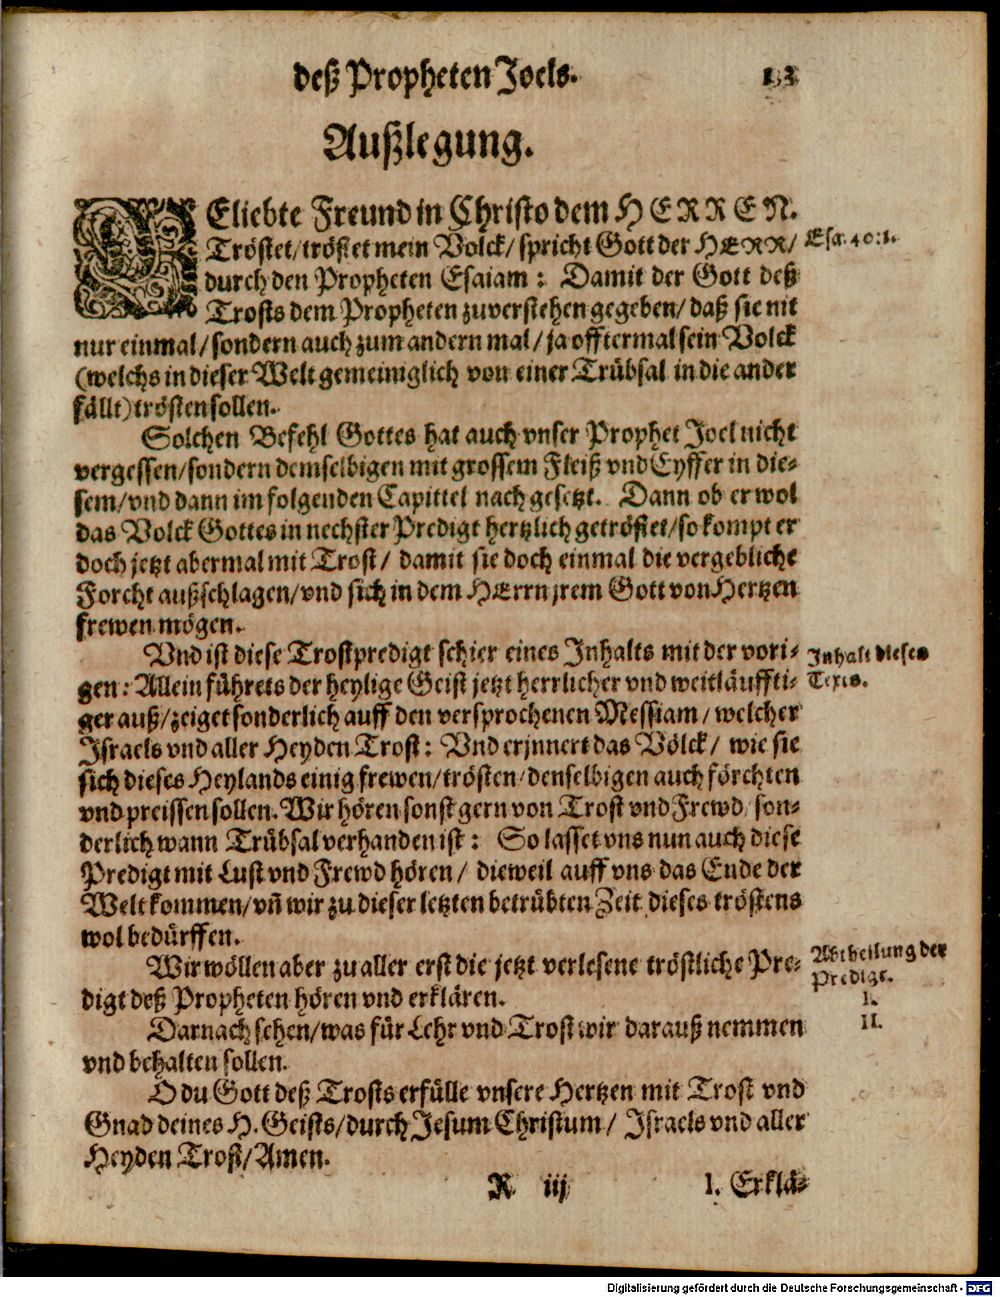 deß Propheten Joels.
Außlegung.
GEliebte Freund in Christo dem HERREN.
Tröstet/tröstet mein Volck/ spricht Gott der HERR/
Esa. 40:1.
durch den Propheten Esaiam: Damit der Gott deß
Trosts dem Propheten zuverstehen gegeben/ daß sie nit
nur einmal/sondern auch zum andern mal/ ja offtermal sein Volck
(welchs in dieser Welt gemeiniglich von einer Trübsal in die ander
fällt) trösten sollen.
Solchen Befehl Gottes hat auch vnser Prophet Joel nicht
vergessen/sondern demselbigen mit grossem Fleiß vnd Eyffer in die-
sem/vnd dann im folgenden Capittel nach gesetzt. Dann ob er wol
das Volck Gottes in nechster Predigt hertzlich getröstet/so kompt er
doch jetzt abermal mit Trost/ damit sie doch einmal die vergebliche
Forcht außschlagen/vnd sich in dem HErrn jrem Gott von Hertzen
frewen mögen.
Vnd ist diese Trostpredigt schier eines Inhalts mit der vori-
Inhalt dieses
gen: Allein führets der heylige Geist jetzt herrlicher vnd weitläuffti-
Texts.
ger auß/zeiget sonderlich auff den versprochenen Messiam/ welcher
Israels vnd aller Heyden Trost: Vnd erjnnert das Völck/ wie sie
sich dieses Heylands einig frewen/trösten/denselbigen auch förchten
vnd preissen sollen. Wir hören sonst gern von Trost vnd Frewd/ son-
derlich wann Trübsal verhanden ist: So lasset vns nun auch diese
Predigt mit Lust vnd Frewd hören/ dieweil auff vns das Ende der
Welt kommen/vñ wir zu dieser letzten betrübten Zeit dieses tröstens
wol bedürffen.
Wir wöllen aber zu aller erst die jetzt verlesene tröstliche Pre-
Abtheilung der
Predigt.
digt deß Propheten hören vnd erklären.
I.
Darnach sehen/was für Lehr vnd Trost wir darauß nemmen
II.
vnd behalten sollen.
O du Gott deß Trosts erfülle vnsere Hertzen mit Trost vnd
Gnad deines H. Geists/durch Jesum Christum/ Israels vnd aller
Heyden Trost/Amen.
R iij
I. Erklä-
Digitalisierung gefördert durch die Deutsche Forschungsgemeinschaft - DFG